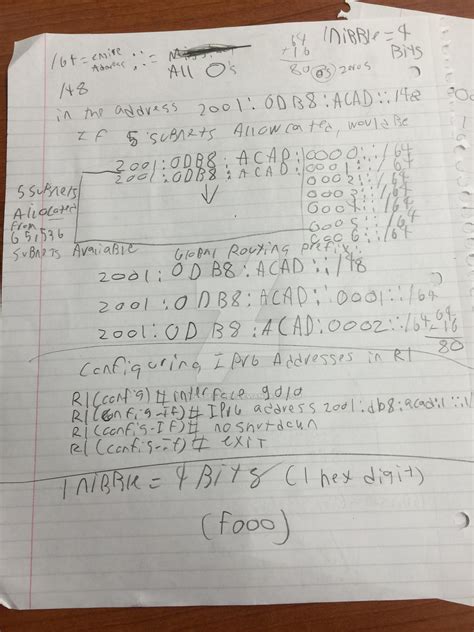 /64 = entire Address :: = All 0's
64 +16 80 zeros
1 NIBBLE = 4 Bits
/48
in the address 2001:0DB8:ACAD::/48
IF 5 subnets Allowcated, would Be
2001:0DB8:ACAD:0000::/64
2001:0DB8:ACAD:0001::/64
0002::/64
0003::/64
0004::/64
0005::/64
0006::/64
5 subnets Allocated From 65,536 subnets Available
Global Routing prefix:
2001:0DB8:ACAD::/48
2001:0DB8:ACAD:0001::/64
2001:0DB8:ACAD:0002::/64
64 +16 80
Configuring IPv6 Addresses in R1
R1(config)# interface g0/0
R1(config-if)# IPv6 address 2001:db8:acad:1::1/
R1(config-IF)# no shutdown
R1(config-if)# exit
1 NIBBLE = 4 Bits (1 hex digit)
(F000)